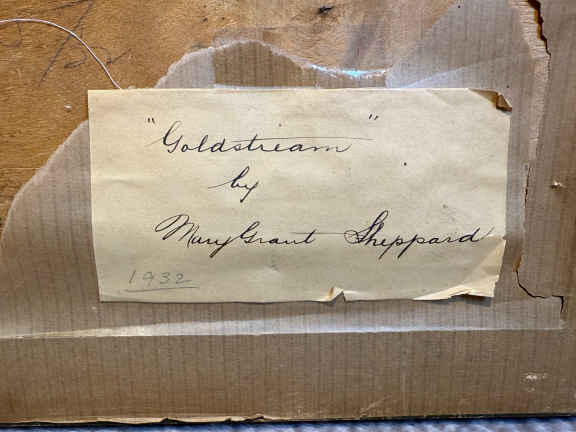 "Goldstream"
by
Mary Grant Sheppard
1932